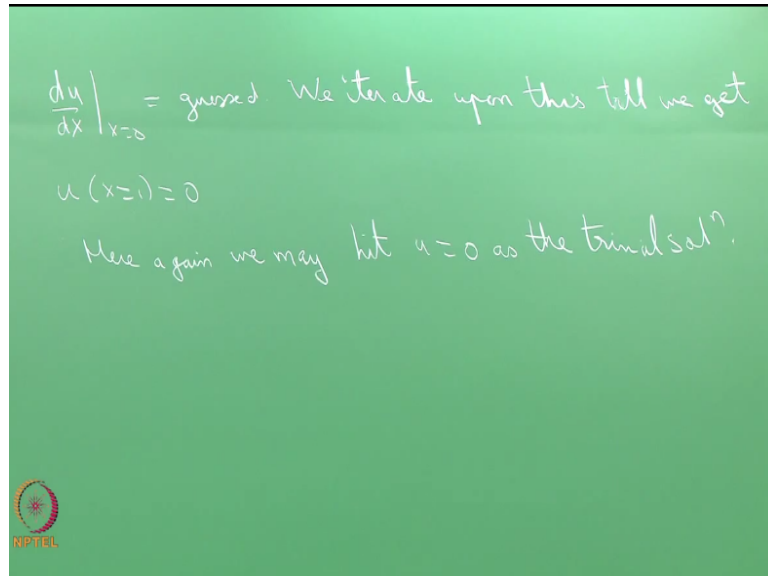 du/dx|x=0 = guessed. We iterate upon this till we get
u (x=1) = 0
Here again we may hit u = 0 as the trivial solⁿ.
NPTEL